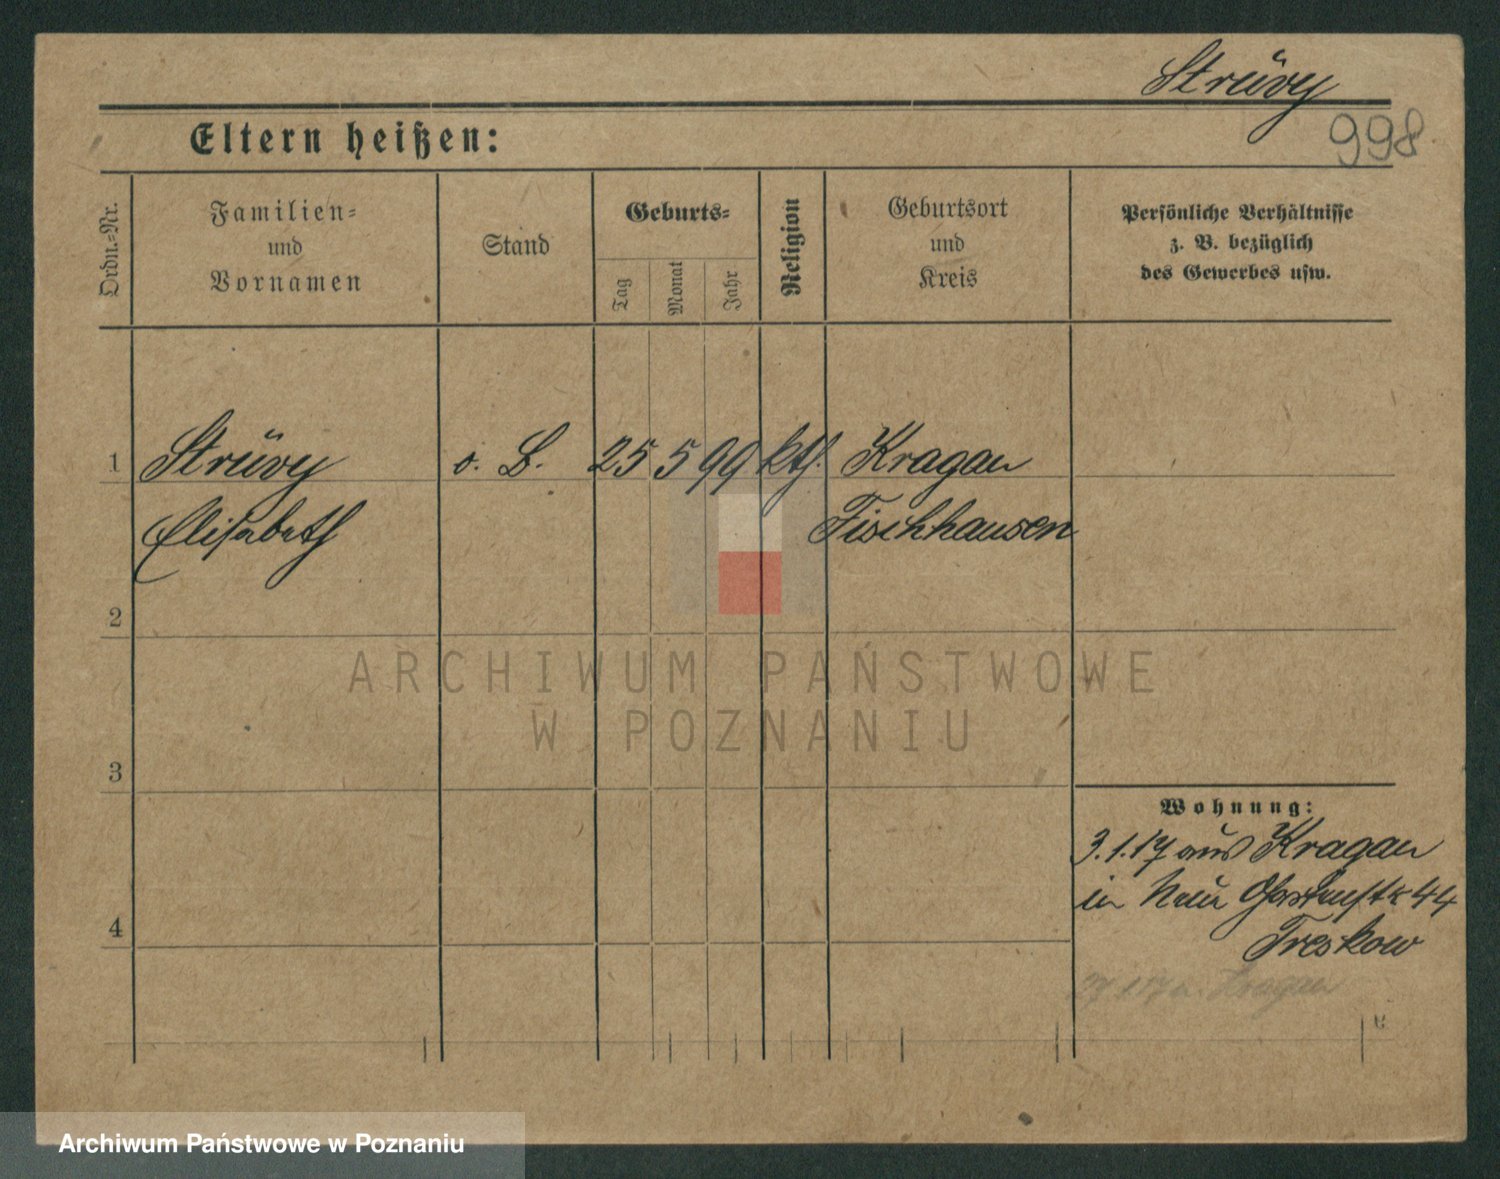 Strüvy
998.
Eltern heißen:
Ordn.=Nr.
Familien=
und
Vornamen
Stand
Geburts=
Tag
Monat
Jahr
Religion
Geburtsort
und
Kreis
Persönliche Verhältnisse
z. B. bezüglich
des Gewerbes usw.
1 Strüvy o. B. 25 5 99 kth. Kragau
Elisabeth Fischhausen
2
ARCHIWUM PAŃSTWOWE
W POZNANIU
3
Wohnung:
3.1.17 aus Kragau
in Neue 44
4
Treskow
Kragau
Archiwum Państwowe w Poznaniu